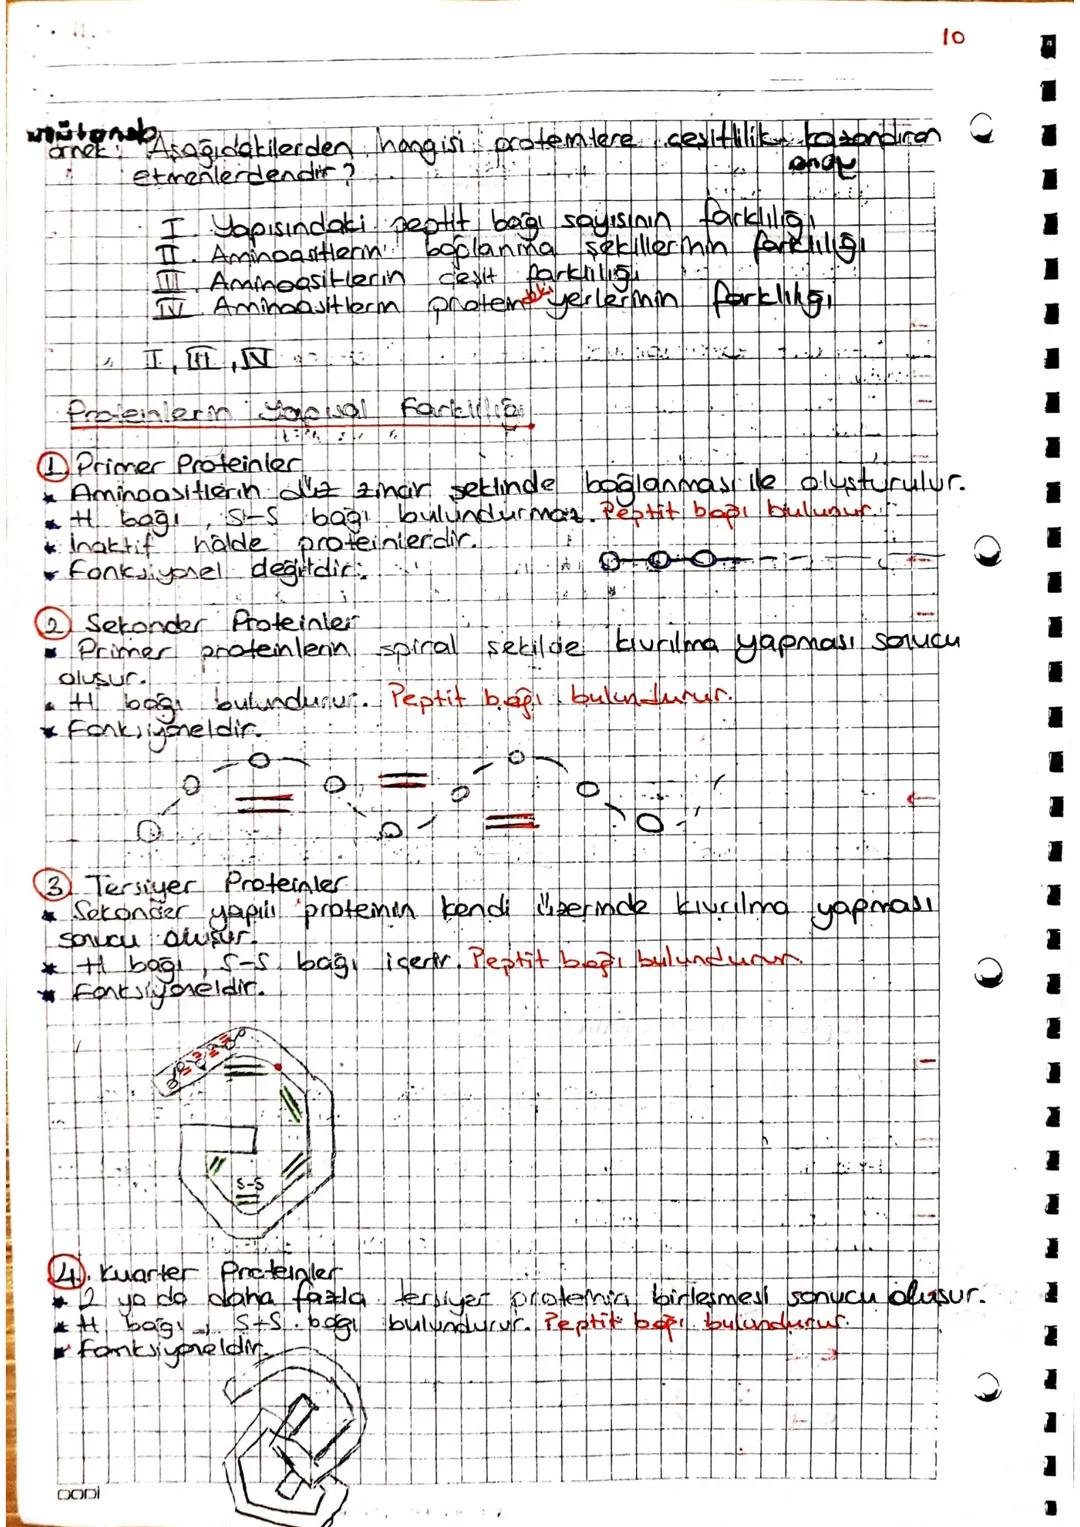 10
örnek: Aşağıdakilerden hangisi proteinlere çeşitlilik kazandıran
etmenlerdendir?
I. Yapısındaki peptit bağı sayısının farklılığı
II. Aminoasitlerin bağlanma şekillerinin farklılığı
III. Aminoasitlerin çeşit farklılığı
IV. Aminoasitlerin proteindeki yerlerinin farklılığı
I, III, IV
Proteinlerin Yapısal Farklılığı
1 Primer Proteinler
* Aminoasitlerin düz zincir şeklinde bağlanması ile oluşturulur.
* H bağı, S-S bağı bulundurmaz. Peptit bağı bulunur.
* İnaktif halde proteinlerdir.
* Fonksiyonel değildir.
2 Sekonder Proteinler
* Primer proteinlerin spiral şekilde kıvrılma yapması sonucu
oluşur.
* H bağı bulundurur. Peptit bağı bulundurur.
* Fonksiyoneldir.
3 Tersiyer Proteinler
* Sekonder yapılı proteinin kendi üzerinde kıvrılma yapması
sonucu oluşur.
* H bağı, S-S bağı içerir. Peptit bağı bulundurur.
* Fonksiyoneldir.
S-S
4. Kuarter Proteinler
* 2 ya da daha fazla tersiyer proteinin birleşmesi sonucu oluşur.
* H bağı, S-S bağı bulundurur. Peptit bağı bulundurur.
* Fonksiyoneldir.